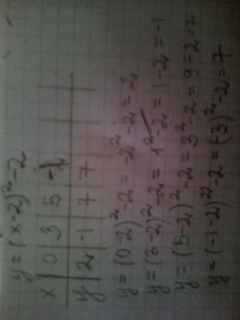 y=(x-2)²-2
x 0 3 5 -1
y 2 -1 7 7
y=(0-2)²-2=-2²-2=2
y=(3-2)²-2=1²-2=1-2=-1
y=(5-2)²-2=3²-2=9-2=7
y=(-1-2)²-2=(-3)²-2=7